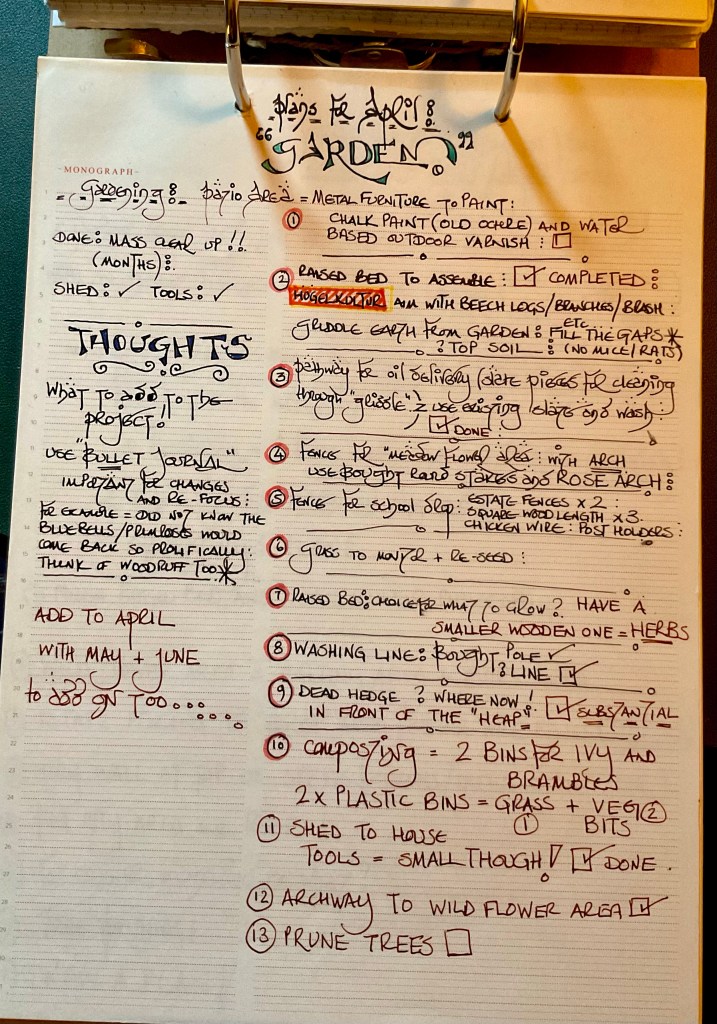 plans for April:
"GARDEN"
-MONOGRAPH-
= Gardening: =
DONE: MASS CLEAR UP!!
(MONTHS):
SHED: ✓ TOOLS: ✓
THOUGHTS
WHAT TO ADD TO THE
PROJECT!
USE "BULLET JOURNAL"
IMPORTANT FOR CHANGES
AND RE-FOCUS:
FOR EXAMPLE = DID NOT KNOW THE
BLUEBELLS/PRIMROSES WOULD
COME BACK SO PROLIFICALLY:
THINK OF WOODRUFF TOO *
ADD TO APRIL
WITH MAY + JUNE
to add on TOO....
patio Area = METAL FURNITURE TO PAINT:
① CHALK PAINT (OLD OCHRE) AND WATER
BASED OUTDOOR VARNISH: ☐
② RAISED BED TO ASSEMBLE: ☑ COMPLETED:
HÜGELKULTUR AIM WITH BEECH LOGS/BRANCHES/BRASH:
GRIDDLE EARTH FROM GARDEN: ETC FILL THE GAPS *
? TOP SOIL: (NO MICE/RATS)
③ pathway for oil delivery (slate pieces for cleaning
through "griddle") & USE EXISTING slate and wash:
☑ DONE:
④ FENCES FOR "meadow flower area: WITH ARCH
USE BOUGHT round STAKES and ROSE ARCH:
⑤ FENCE FOR school drop: ESTATE FENCES x 2.
SQUARE WOOD LENGTH x 3.
CHICKEN WIRE: POST HOLDERS:
⑥ GRASS TO MONITOR + RE-SEED:
⑦ RAISED BED: CHOICE FOR WHAT TO GROW? HAVE A
SMALLER WOODEN ONE = HERBS
⑧ WASHING LINE: Bought POLE ✓
& LINE ☑
⑨ DEAD HEDGE? WHERE NOW!
IN FRONT OF THE "HEAP" ☑ SUBSTANTIAL
⑩ composting = 2 BINS FOR IVY AND
BRAMBLES
2 x PLASTIC BINS = GRASS ① + VEG BITS ②
⑪ SHED TO HOUSE
TOOLS = SMALL THOUGH! ☑ DONE.
⑫ ARCHWAY TO WILD FLOWER AREA ☑
⑬ PRUNE TREES ☐